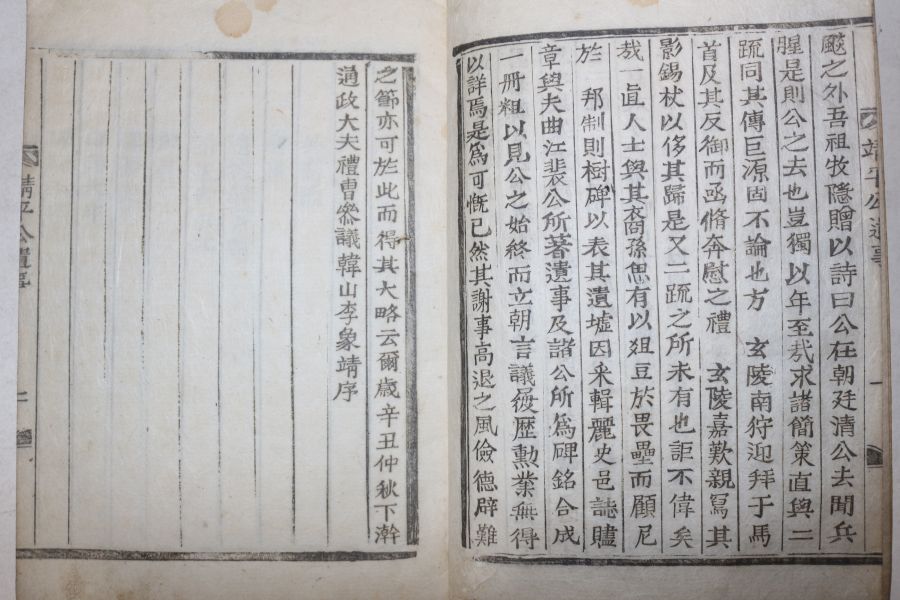 靖平公遺事
一
颷之外吾祖牧隱贈以詩曰公在朝廷清公去聞兵
腥是則公之去也豈獨以年至㢤求諸簡策直與二
疏同其傳巨源固不論也方 玄陵南狩迎拜于馬
首及其反御而函脩奔慰之禮 玄陵嘉歎親冩其
影錫杖以侈其歸是又二疏之所未有也詎不偉矣
㢤一直人士與其裔孫思有以俎豆於畏壘而顧尼
於 邦制則樹碑以表其遺墟因采輯麗史邑誌贐
章與夫曲江裴公所著遺事及諸公所爲碑銘合成
一册粗以見公之始終而立朝言議履歷勲業無得
以詳焉是爲可慨已然其謝事高退之風儉德辟難
之節亦可於此而得其大略云爾歲辛丑仲秋下澣
通政大夫禮曹叅議韓山李象靖序
靖平公遺事
二